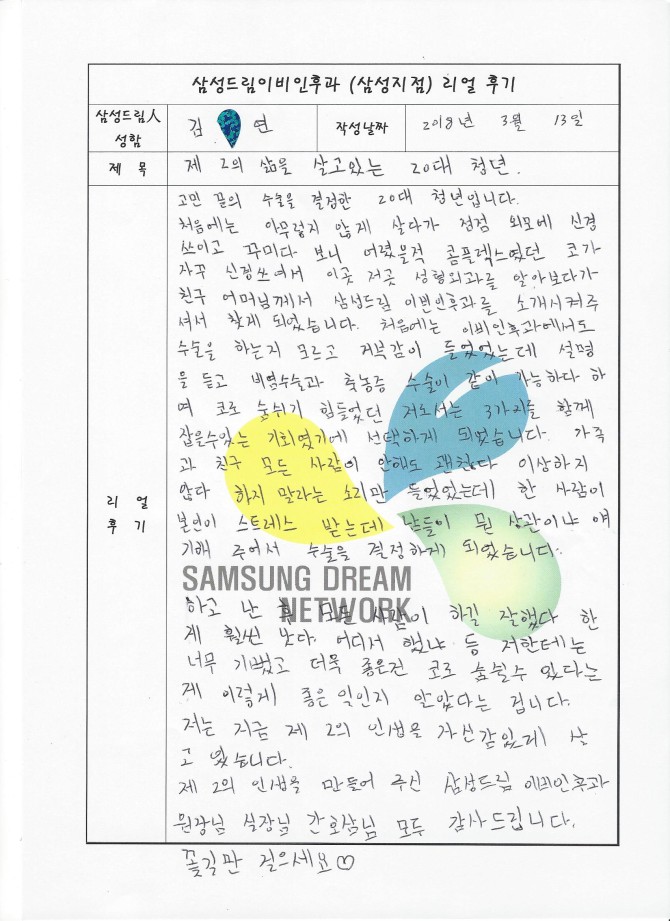 삼성드림이비인후과 (삼성지점) 리얼 후기
삼성드림人
성함
김 연
작성날짜
2018년 3월 13일
제 목
제 2의 삶을 살고있는 20대 청년.
리 얼
후 기
고민 끝의 수술을 결정한 20대 청년입니다.
처음에는 아무렇지 않게 살다가 점점 외모에 신경
쓰이고 꾸미다 보니 어렸을적 콤플렉스였던 코가
자꾸 신경쓰여서 이곳 저곳 성형외과를 알아보다가
친구 어머님께서 삼성드림 이빈인후과를 소개시켜주
셔서 찾게 되었습니다. 처음에는 이비인후과에서도
수술을 하는지 모르고 거부감이 들었었는데 설명
을 듣고 비염수술과 축농증 수술이 같이 가능하다 하
여 코로 숨쉬기 힘들었던 저로서는 3가지를 함께
잡을수있는 기회였기에 선택하게 되었습니다. 가족
과 친구 모든 사람이 안해도 괜찮다 이상하지
않다 하지 말라는 소리만 들었었는데 한 사람이
본인이 스트레스 받는데 남들이 뭔 상관이냐 얘
기해 주어서 수술을 결정하게 되었습니다.
SAMSUNG DREAM
NETWORK
하고 난 후 모든 사람이 하길 잘했다 한
게 훨씬 낫다. 어디서 했냐 등 저한테는
너무 기뻤고 더욱 좋은건 코로 숨쉴수 있다는
게 이렇게 좋은 일인지 알았다는 겁니다.
저는 지금 제 2의 인생을 자신감있게 살
고 있습니다.
제 2의 인생을 만들어 주신 삼성드림 이비인후과
원장님 실장님 간호삼님 모두 감사드립니다.
꽃길만 걸으세요♡